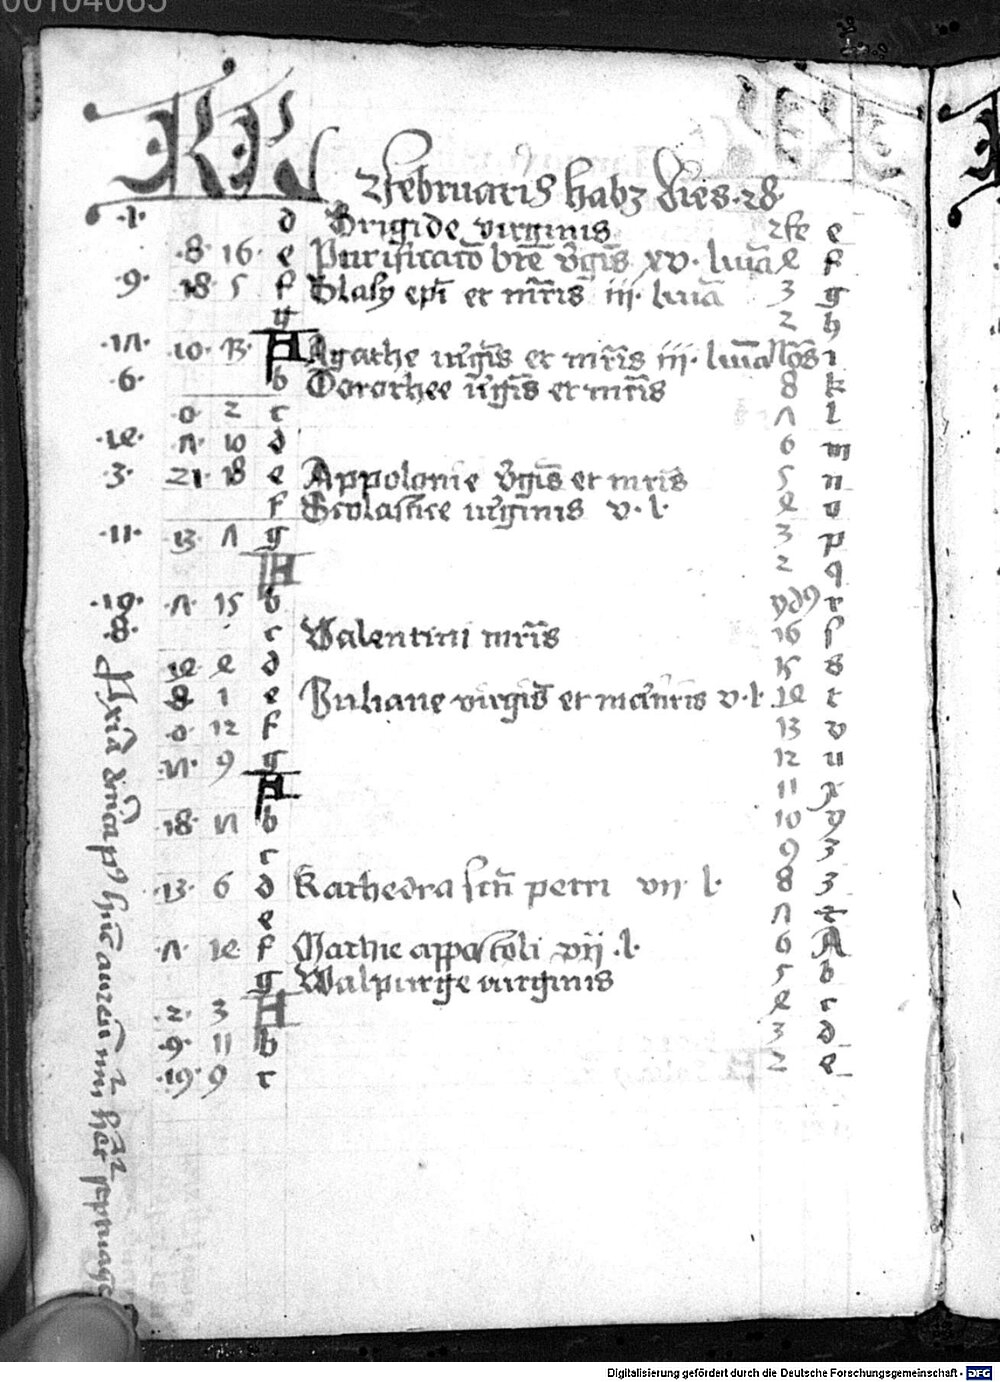 00104065
KL Februarius habz dies · 28 ·
·1· d Brigide virginis 2fe e
·8· 16· e Purificatō bte v̄gis xv· luīa e f
9· 18· 5 f Blasy epī et mr̄is iii· luīa 3 g
g 2 h
·17· ·10· 13· A Agathe vīgis et mr̄is iii· luīa Nos i
·6· b Dorothee vīgis et mr̄is 8 k
·0· 2 c 7 l
·14· ·7· 10 d 6 m
·3· 21· 18 e Appolonie v̄gis et mr̄is 5 n
f Scolastice virginis v· l· 4 o
·11· ·13· 7 g 3 p
A 2 q
·19· ·7· 15 b yd9 r
·8· c Valentini mr̄is 16 s
14· 4 d 15 s
8· 1 e Juliane virgis et mart̄ris v·l· 14 t
·0· 12 f 13 v
·17· 9 g 12 u
A 11 x
·18· 17 b 10 y
c 9 z
·13· 6 d Kathedra sctī petri vii l· 8 3
e 7
·7· 14 f Mathie appostoli vii ·l· 6 A
g Walpurge virginis 5 b
·2· 3 A 4 c
·9· 11 b 3 d
·19· 9 c 2 e
Digitalisierung gefördert durch die Deutsche Forschungsgemeinschaft - DFG